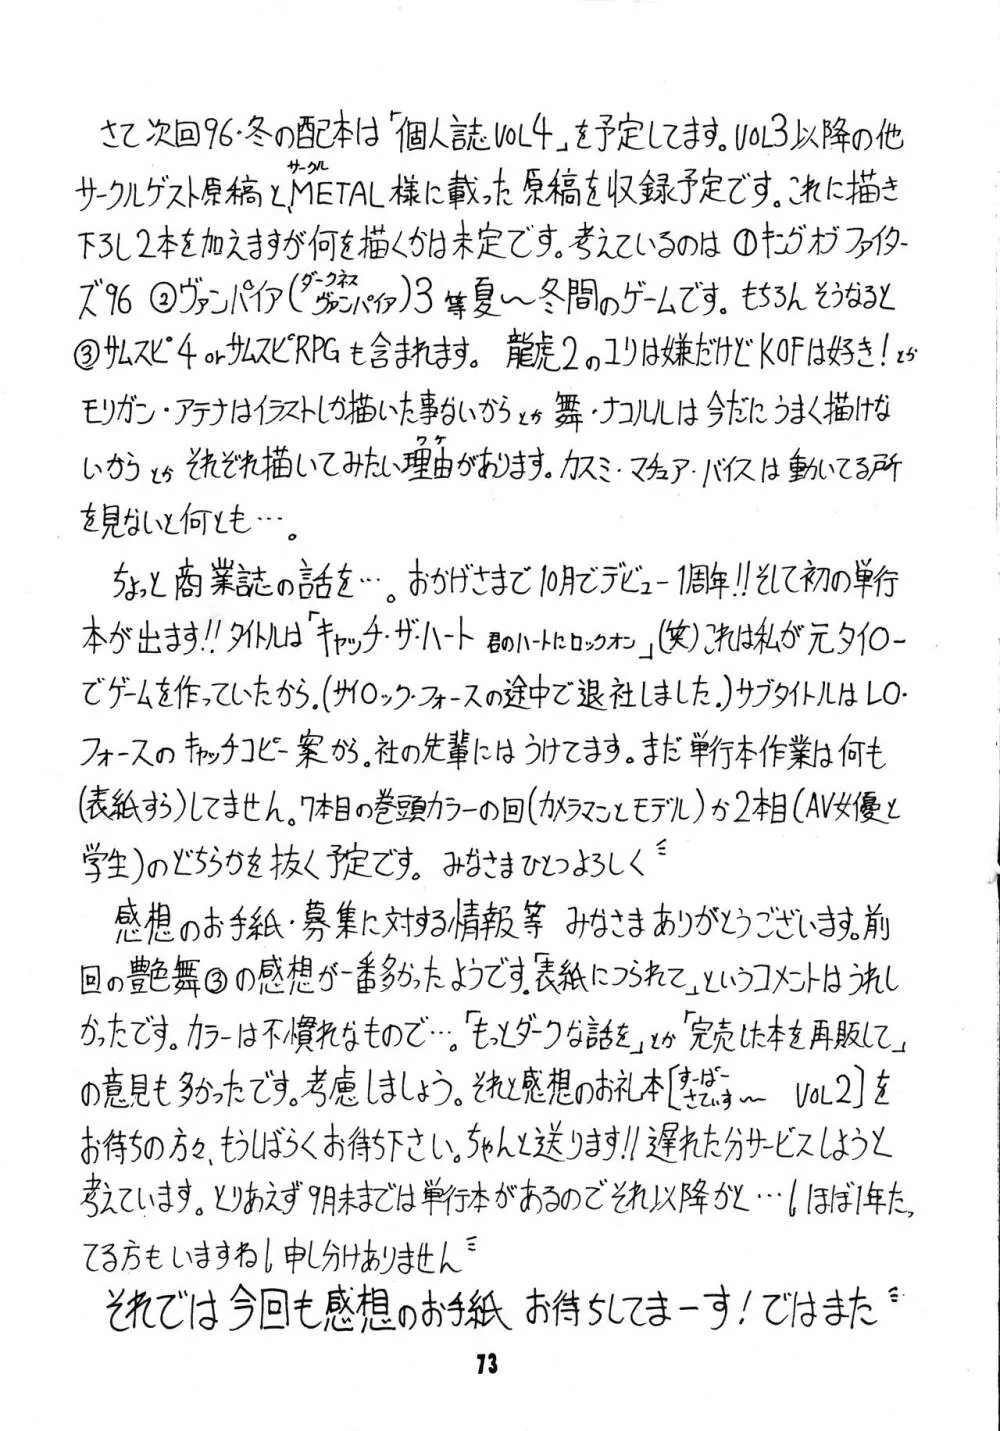 さて次回96・冬の配本は「個人誌VOL4」を予定してます。VOL3以降の他
サークルゲスト原稿と、METAL様に載った原稿を収録予定です。これに描き
サークル
下ろし2本を加えますが何を描くかは未定です。考えているのは ①キングオブファイター
ズ96 ②ヴァンパイア(ダークネス ヴァンパイア)3 等夏〜冬間のゲームです。もちろん そうなると
③サムスピ4 or サムスピRPGも含まれます。 龍虎2のユリは嫌だけどKOFは好き! とか
モリガン・アテナはイラストしか描いた事ないからとか 舞・ナコルルは今だにうまく描けな
いからとか それぞれ描いてみたい理由があります。カスミ・マチュア・バイスは動いてる所
ワケ
を見ないと何とも…。
ちょっと商業誌の話を…。おかげさまで10月でデビュー1周年!!そして初の単行
本が出ます!! タイトルは「キャッチ・ザ・ハート 君のハートにロックオン」(笑)これは私が元タイロー
でゲームを作っていたから。(サイロック・フォースの途中で退社しました。)サブタイトルはLO・
フォースのキャッチコピー案から。社の先輩にはうけてます。まだ単行本作業は何も
(表紙すら)してません。7本目の巻頭カラーの回(カメラマンとモデル)か2本目(AV女優と
学生)のどちらかを抜く予定です。 みなさまひとつよろしく
感想のお手紙・募集に対する情報等 みなさまありがとうございます。前
回の艶色舞③の感想が一番多かったようです。「表紙につられて」というコメントはうれし
かったです。カラーは不慣れなもので…。「もっとダークな話を」とか「完売した本を再販して」
の意見も多かったです。考慮しましょう。それと感想のお礼本[すーぱーさでぃす〜 VOL2]を
お待ちの方々、もうしばらくお待ち下さい。ちゃんと送ります!!遅れた分サービスしようと
考えています。とりあえず9月末までは単行本があるのでそれ以降かと…(ほぼ1年たっ
てる方もいますね)申し分けありません
それでは今回も感想のお手紙 お待ちしてまーす! ではまた
73